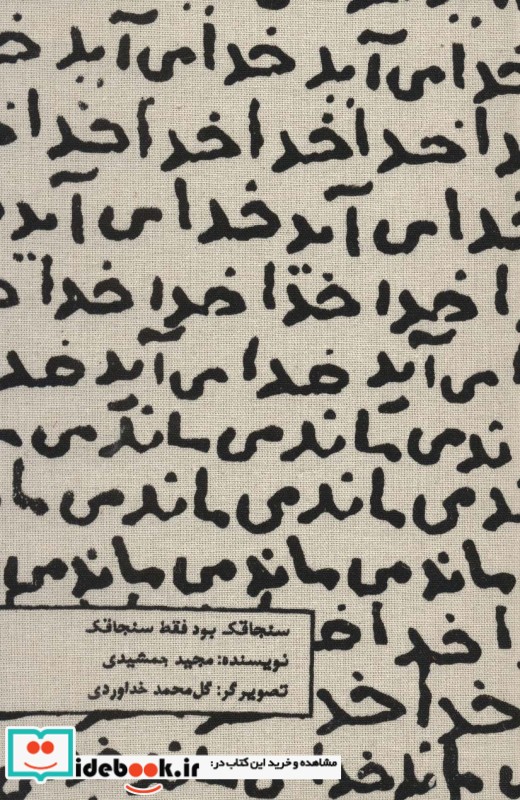 خدا می آید خدا می آید خد
دا خدا خدا خدا خدا
خدا می آید خدا می آید
ا خدا خدا خدا خدا
می آید خدا می آید خد
ند می ماند می ماند می
ند می ماند می ماند می ما
ماند می ماند می ماند می
ا خدا خد
سنجاقک بود فقط سنجاقک
نویسنده: مجید جمشیدی
تصویرگر: گل‌محمد خداوردی
خدا خد
مشاهده و خرید این کتاب در:
idebook.ir